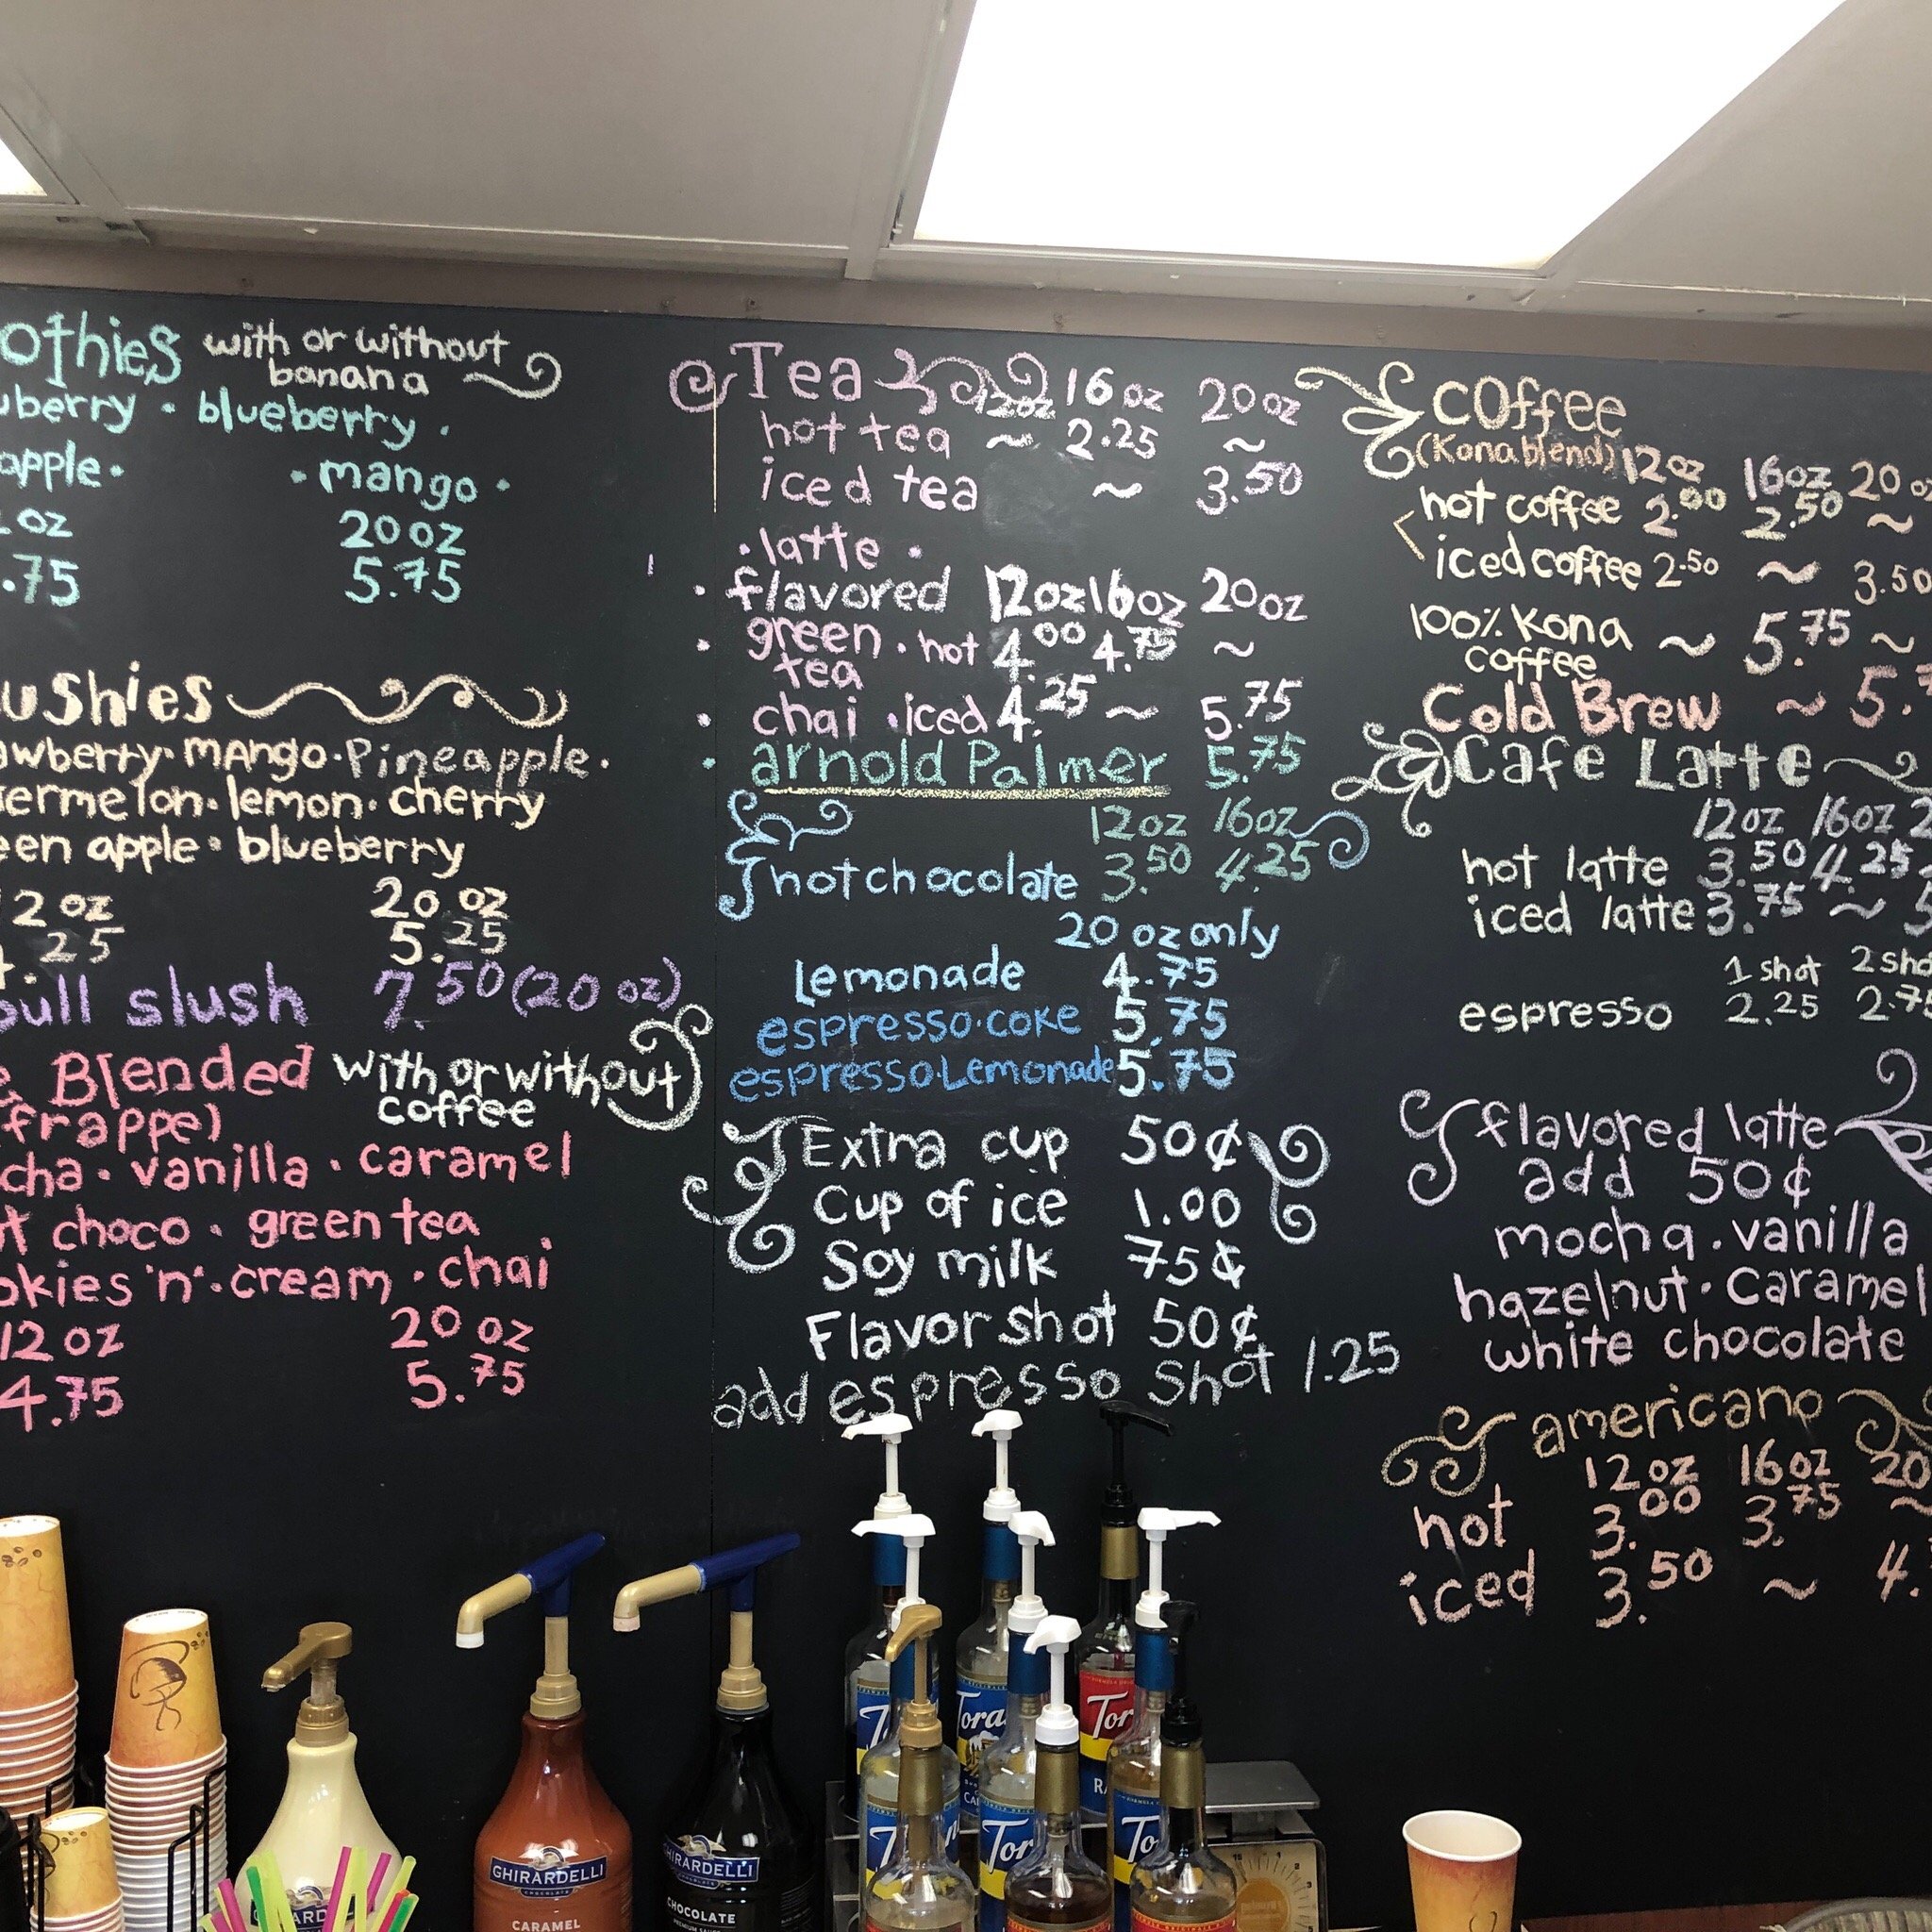 othies with or without
banana
uberry · blueberry ·
apple · · mango ·
oz 20 oz
.75 5.75
ushies
awberry · mango · Pineapple ·
ermelon · lemon · cherry
een apple · blueberry
12 oz 20 oz
.25 5.25
bull slush 7.50 (20 oz)
e Blended with or without
coffee
(frappe)
cha · vanilla · caramel
t choco · green tea
okies 'n' · cream · chai
12 oz 20 oz
4.75 5.75
Tea 12oz 16 oz 20 oz
hot tea ~ 2.25 ~
iced tea ~ 3.50
· latte ·
· flavored 12oz 16oz 20oz
· green · hot 4.00 4.75 ~
tea
· chai · iced 4.25 ~ 5.75
· arnold Palmer 5.75
12oz 16oz
hot chocolate 3.50 4.25
20 oz only
Lemonade 4.75
espresso · coke 5.75
espresso Lemonade 5.75
Extra cup 50¢
Cup of ice 1.00
Soy milk 75¢
Flavor shot 50¢
add espresso shot 1.25
coffee
(Kona blend) 12oz 16oz 20 oz
hot coffee 2.00 2.50 ~
iced coffee 2.50 ~ 3.50
100% Kona ~ 5.75 ~
coffee
Cold Brew ~ 5.
Cafe Latte
12oz 16oz 2
hot latte 3.50 4.25
iced latte 3.75 ~ 5
1 shot 2 sho
espresso 2.25 2.75
flavored latte
add 50¢
mocha · vanilla
hazelnut · caramel
white chocolate
americano
12oz 16oz 20
hot 3.00 3.75 ~
iced 3.50 ~ 4.
Tora
Tor
To
Tor
To
GHIRARDELLI
CHOCOLATE
CARAMEL
GHIRARDELLI
CHOCOLATE